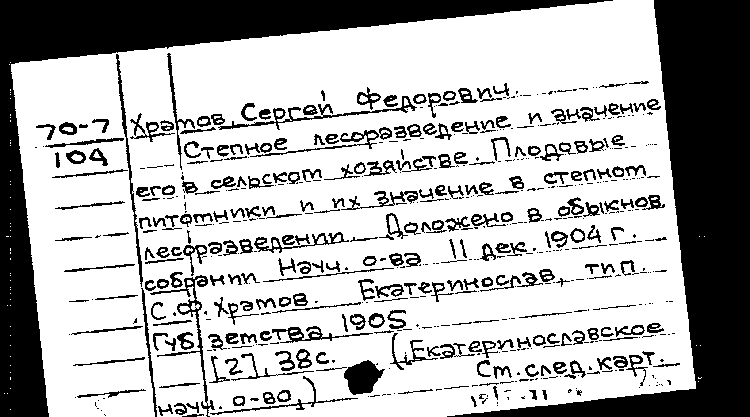 70-7
104
Храмов, Сергей Федорович.
Степное лесоразведение и значение
его в сельском хозяйстве. Плодовые
питомники и их значение в степном
лесоразведении. Доложено в обыкнов.
собрании Науч. о-ва 11 дек. 1904 г.
С.Ф. Храмов. Екатеринослав, тип.
Губ. земства, 1905.
[2], 38 с. (Екатеринославское
науч. о-во.)
См. след. карт.